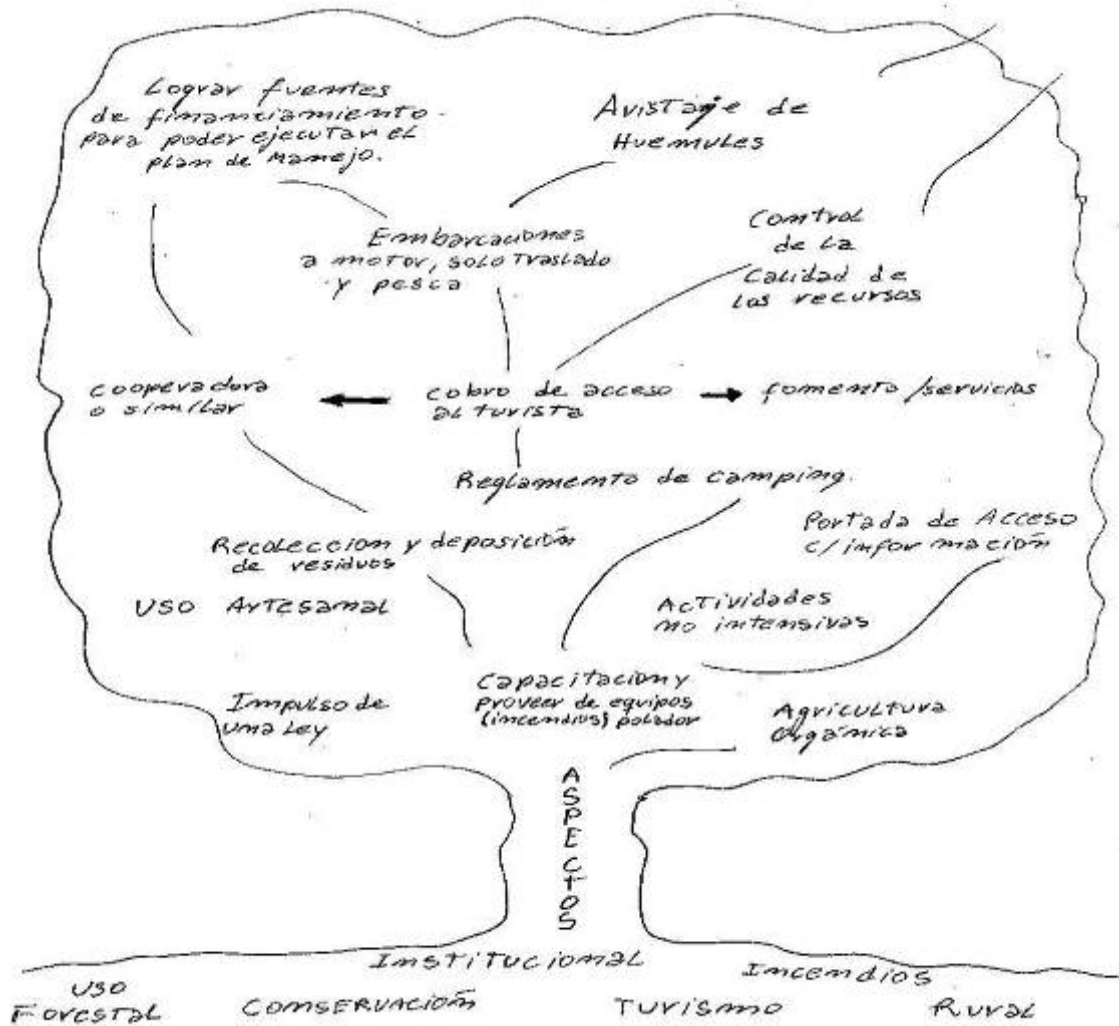 Lograr fuentes
de financiamiento
para poder ejecutar el
plan de Manejo.
Avistaje de
Huemules
Embarcaciones
a motor, solo traslado
y pesca
Control
de la
Calidad de
los recursos
cooperadora
o similar
cobro de acceso
al turista
fomento/servicios
Reglamento de camping.
Recoleccion y deposición
de residuos
Portada de Acceso
c/información
USO ARTESANAL
Actividades
no intensivas
Impulso de
una Ley
Capacitacion y
proveer de equipos
(incendios) polador
Agricultura
Orgánica
ASPECTOS
INSTITUCIONAL
INCENDIOS
USO
FORESTAL
CONSERVACIÓN
TURISMO
RURAL